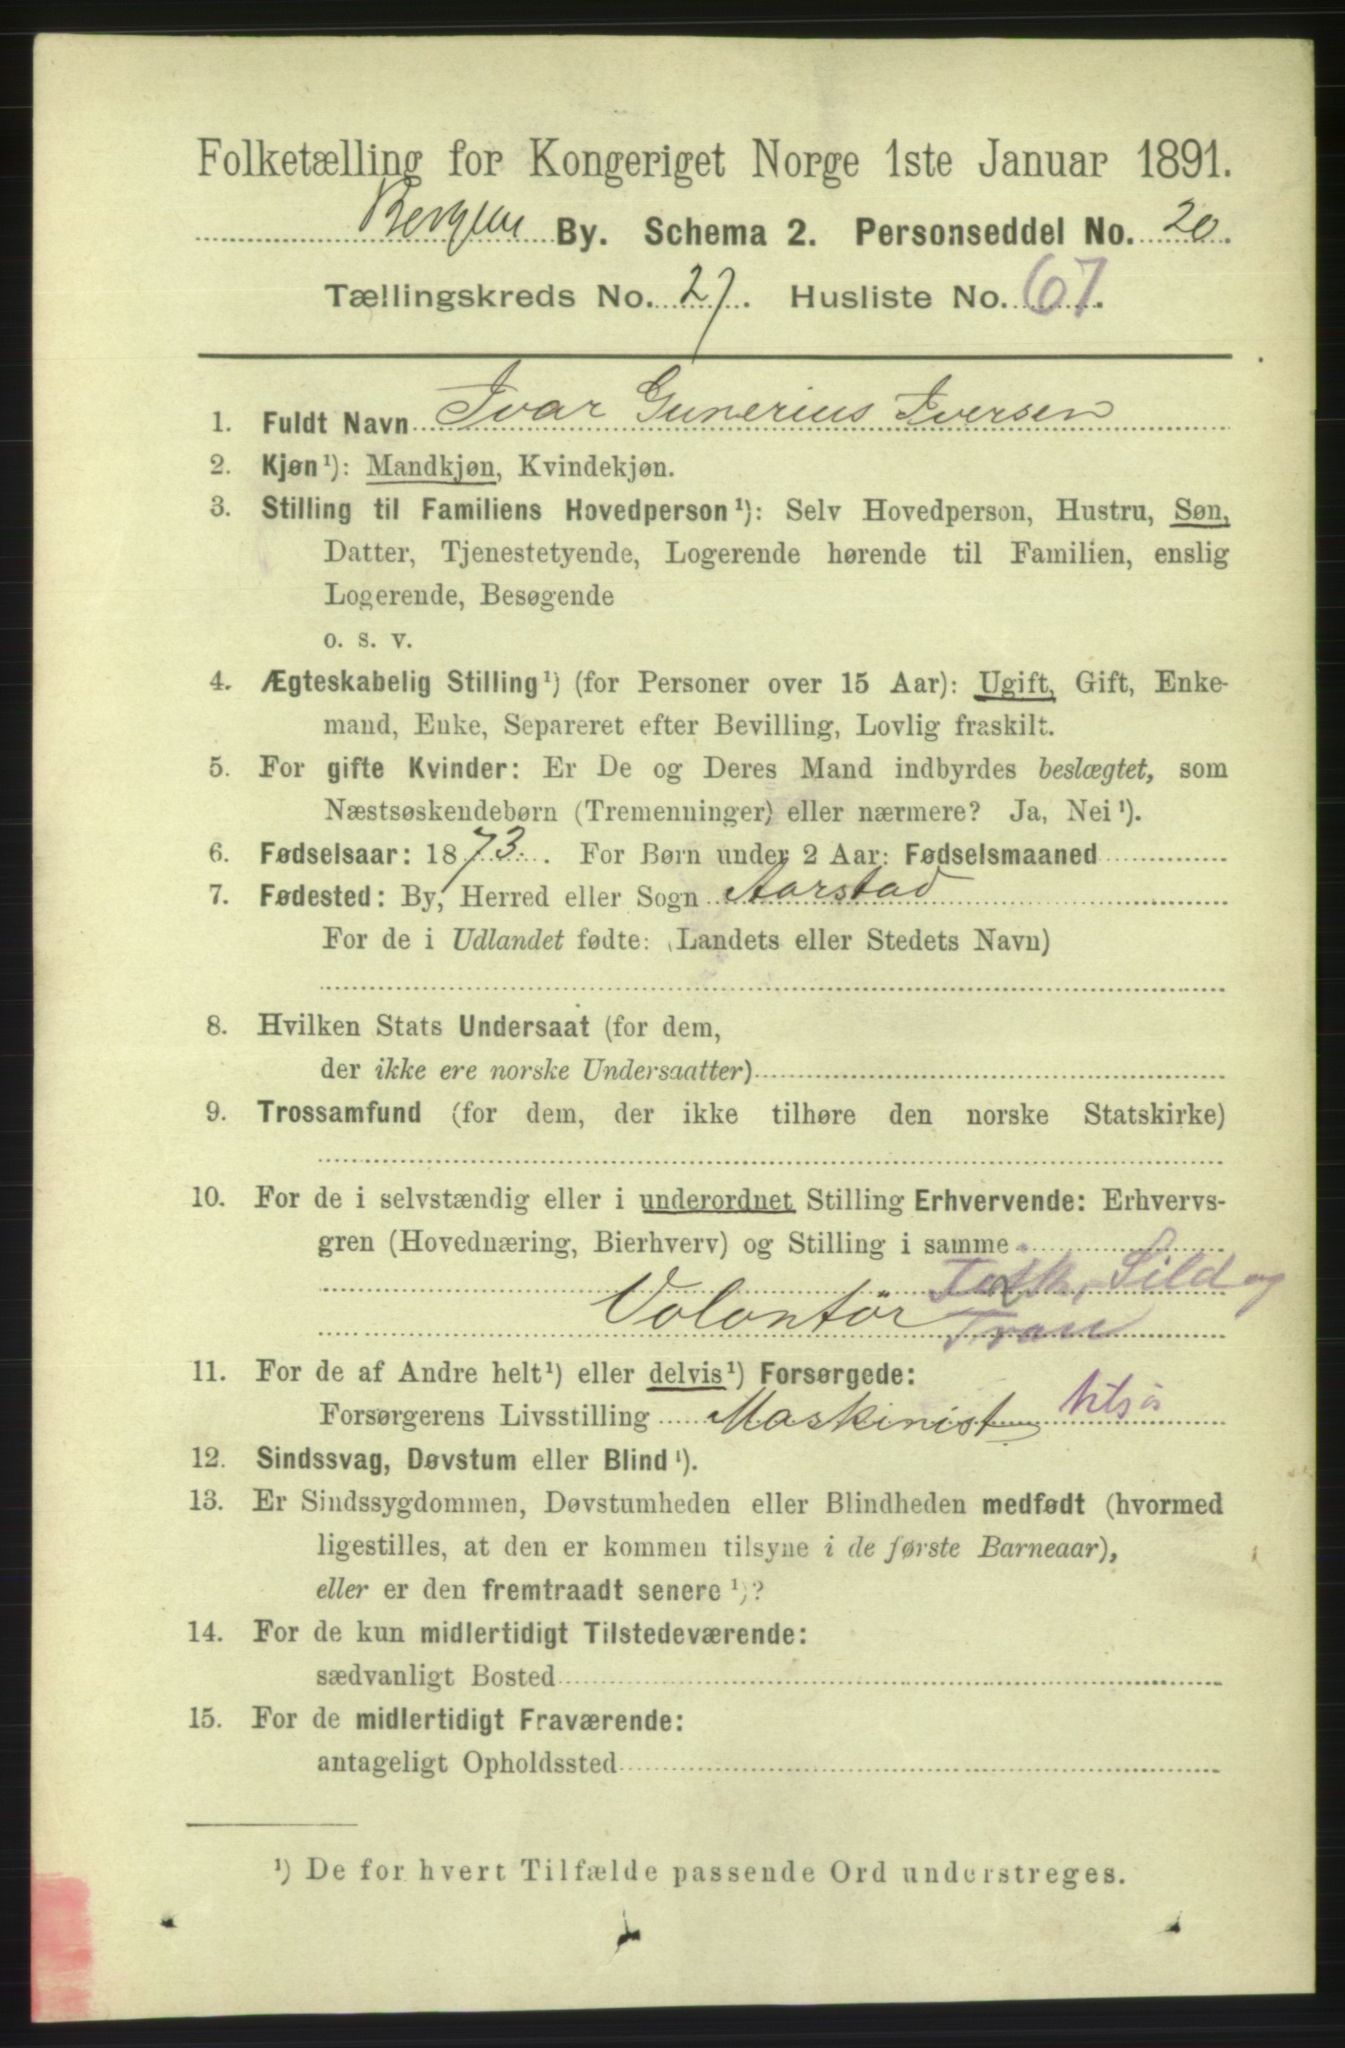 Folketælling for Kongeriget Norge 1ste Januar 1891.
Bergen By. Schema 2. Personseddel No. 20.
Tællingskreds No. 27. Husliste No. 67.
1. Fuldt Navn Ivar Gunerius Iversen
2. Kjøn¹): Mandkjøn, Kvindekjøn.
3. Stilling til Familiens Hovedperson¹): Selv Hovedperson, Hustru, Søn,
Datter, Tjenestetyende, Logerende hørende til Familien, enslig
Logerende, Besøgende
o. s. v.
4. Ægteskabelig Stilling¹) (for Personer over 15 Aar): Ugift, Gift, Enke-
mand, Enke, Separeret efter Bevilling, Lovlig fraskilt.
5. For gifte Kvinder: Er De og Deres Mand indbyrdes beslægtet, som
Næstsøskendebørn (Tremenninger) eller nærmere? Ja, Nei¹).
6. Fødselsaar: 1873. For Børn under 2 Aar: Fødselsmaaned
7. Fødested: By, Herred eller Sogn Aarstad
For de i Udlandet fødte: (Landets eller Stedets Navn)
8. Hvilken Stats Undersaat (for dem,
der ikke ere norske Undersaatter)
9. Trossamfund (for dem, der ikke tilhøre den norske Statskirke)
10. For de i selvstændig eller i underordnet Stilling Erhvervende: Erhvervs-
gren (Hovednæring, Bierhverv) og Stilling i samme
Sild og
Volontör Tran
11. For de af Andre helt¹) eller delvis¹) Forsørgede:
Forsørgerens Livsstilling Maskinist
12. Sindssvag, Døvstum eller Blind¹).
13. Er Sindssygdommen, Døvstumheden eller Blindheden medfødt (hvormed
ligestilles, at den er kommen tilsyne i de første Barneaar),
eller er den fremtraadt senere¹)?
14. For de kun midlertidigt Tilstedeværende:
sædvanligt Bosted
15. For de midlertidigt Fraværende:
antageligt Opholdssted
¹) De for hvert Tilfælde passende Ord understreges.